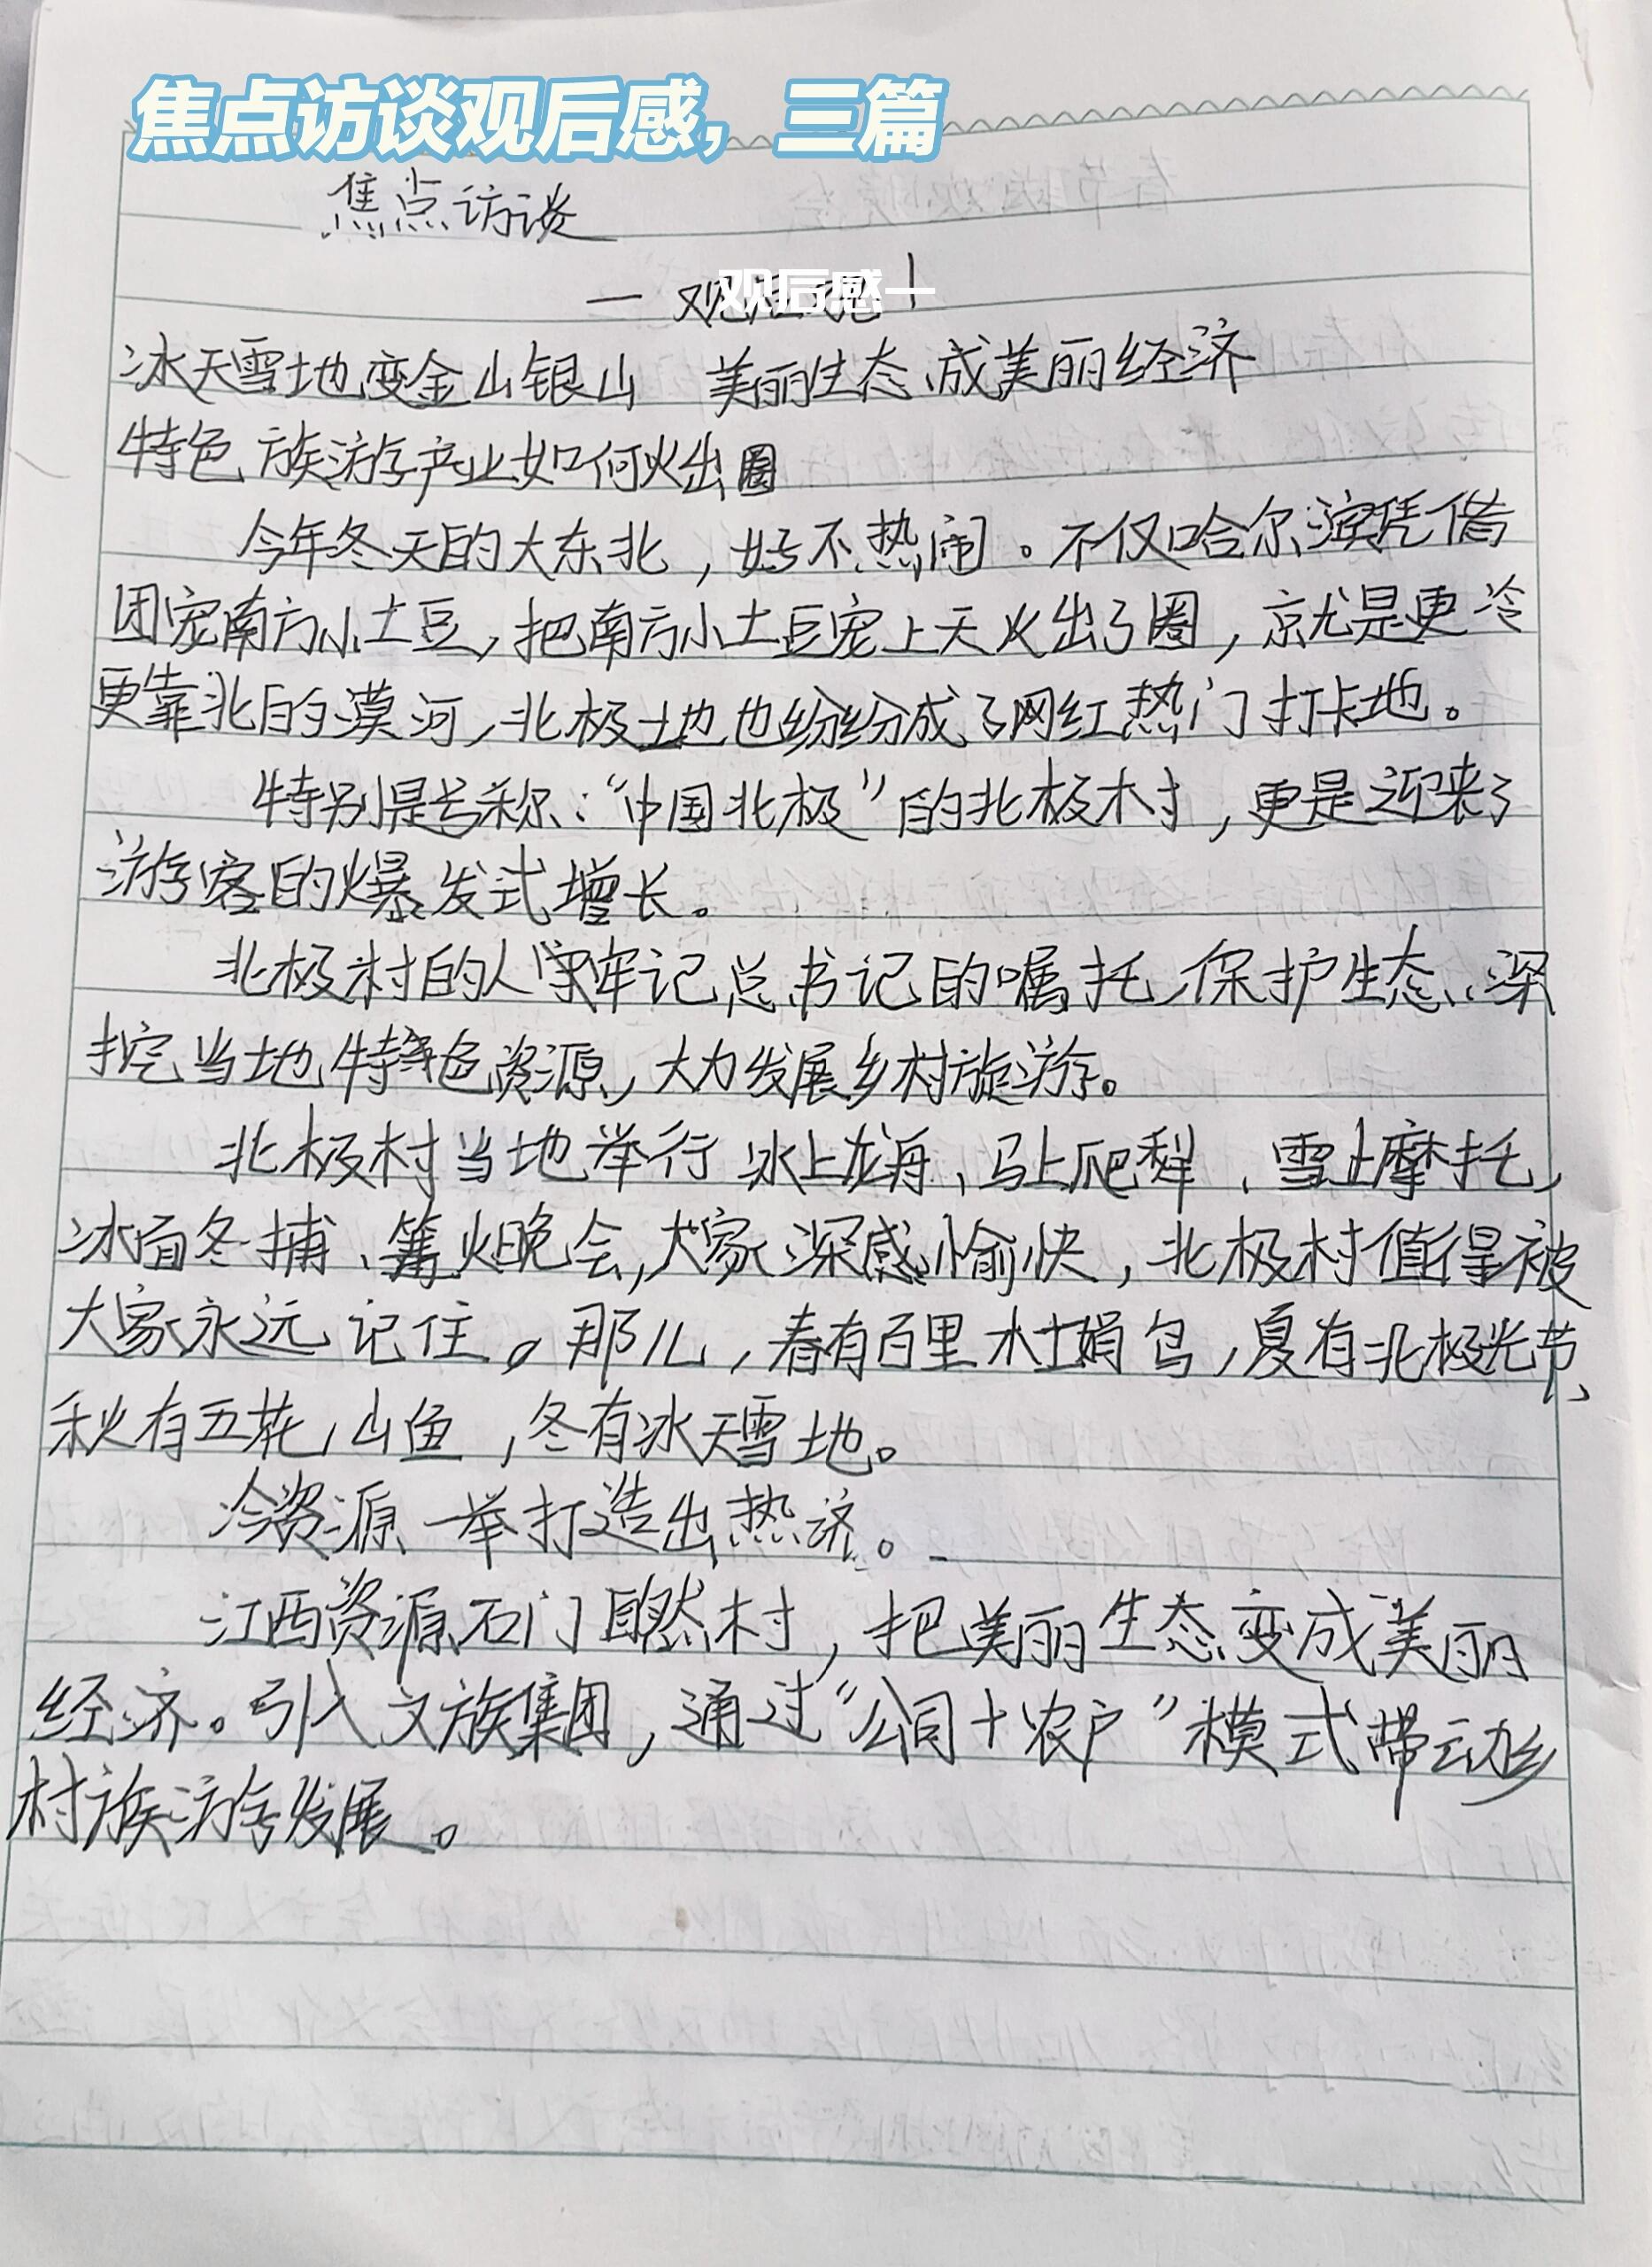 焦点访谈观后感，三篇
焦点访谈
观后感一
一观后感1
冰天雪地变金山银山 美丽生态成美丽经济
特色族游产业如何火出圈
今年冬天的大东北，好不热闹。不仅哈尔滨凭借
团宠南方小土豆，把南方小土豆宠上天火出了圈，京尤是更冷
更靠北的漠河，北极土地也纷纷成了网红热门打卡地。
特别是号称：“中国北极”的北极村，更是迎来了
游客的爆发式增长。
北极村的人牢记总书记的嘱托，保护生态、深
挖当地特色资源，大力发展乡村旋游。
北极村当地举行冰上龙舟、马上爬犁、雪上摩托，
冰面冬捕、篝火晚会，大家深感愉快，北极村值得被
大家永远记住。那儿，春有百里杜娟鸟，夏有北极光节，
秋有五花山鱼，冬有冰天雪地。
冷资源一举打造出热济。
江西资源石门自然村，把美丽生态变成美丽
经济。引入文族集团，通过“公司+农户”模式带动乡
村族游发展。